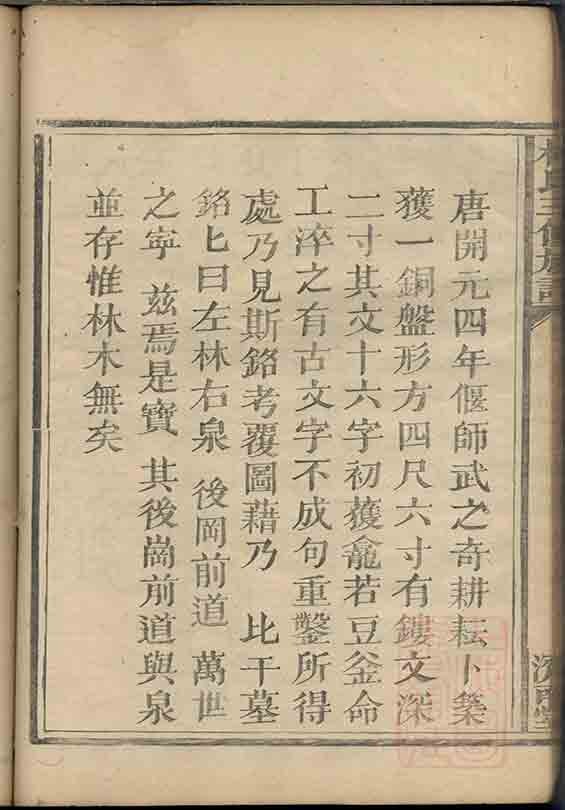 唐開元四年偃師武之奇耕耘卜築
獲一銅盤形方四尺六寸有鏤文深
二寸其文十六字初獲龕若豆釡命
工淬之有古文字不成句重鑿所得
處乃見斯銘考覆圖藉乃 比干墓
銘匕曰左林右泉 後岡前道 萬世
之寧 茲焉是寶 其後崗前道與泉
並存惟林木無矣